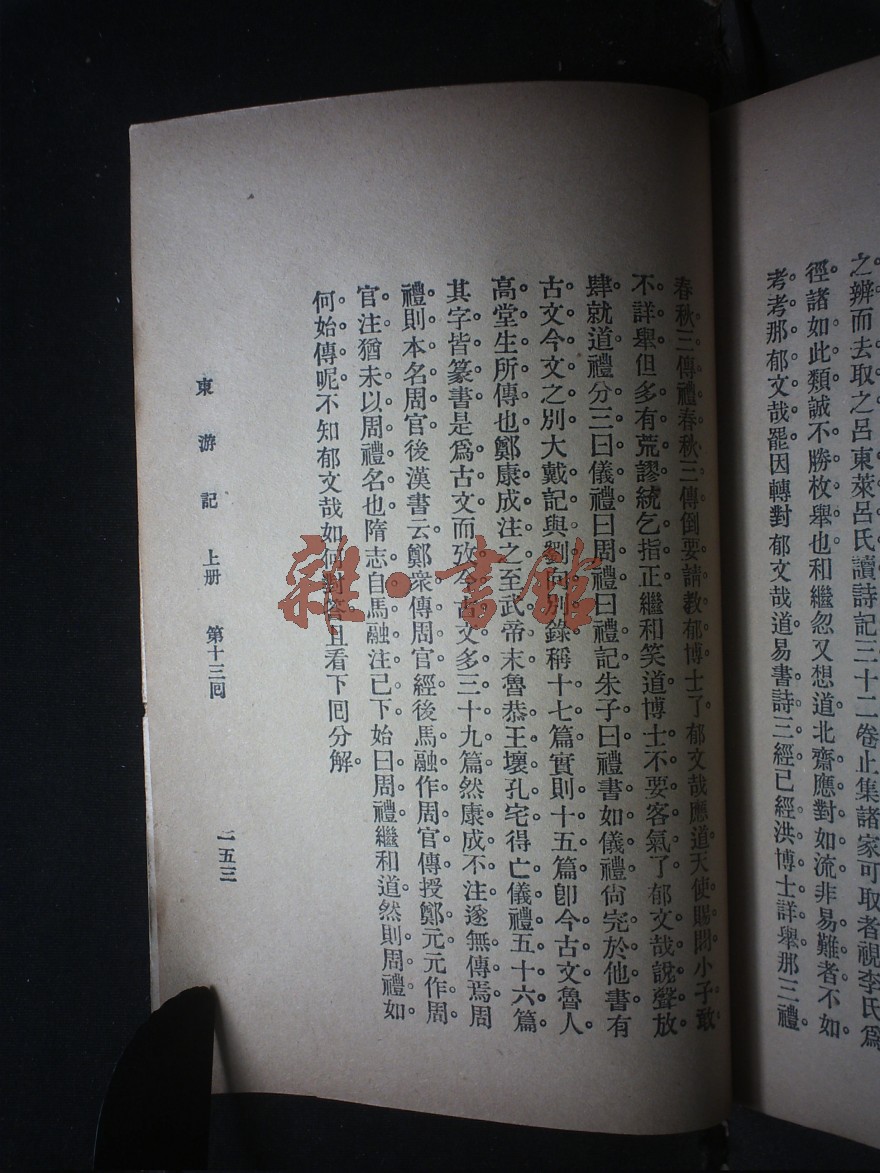 之辨而去取之。呂東萊呂氏讀詩記三十二卷止集諸家可取者視李氏爲
徑。諸如此類。誠不勝枚舉也。和繼忽又想道。北齋應對如流。非易難者。不如
考考那郁文哉罷。因轉對郁文哉道。易書詩三經。已經洪博士詳舉。那三禮
春秋三傳禮春秋三傳。倒要請教郁博士了。郁文哉應道。天使賜問。小子敢
不詳舉。但多有荒謬。統乞指正。繼和笑道。博士不要客氣了。郁文哉說聲放
肆。就道。禮分三。曰儀禮。曰周禮。曰禮記。朱子曰。禮書如儀禮。尙完於他書。有
古文今文之別。大戴記與劉向別錄。稱十七篇。實則十五篇。卽今古文魯人
高堂生所傳也。鄭康成注之。至武帝末。魯恭王壞孔宅。得亡儀禮五十六篇。
其字皆篆書。是爲古文。而攷今古文多三十九篇。然康成不注。遂無傳焉。周
禮則本名周官。後漢書云。鄭衆傳周官經。後馬融作周官傳。授鄭元。元作周
官注。猶未以周禮名也。隋志自馬融注已下。始曰周禮。繼和道。然則周禮如
何。始傳呢。不知郁文哉如何對答。且看下回分解。
東游記 上册 第十三回 一五三
雜·書館